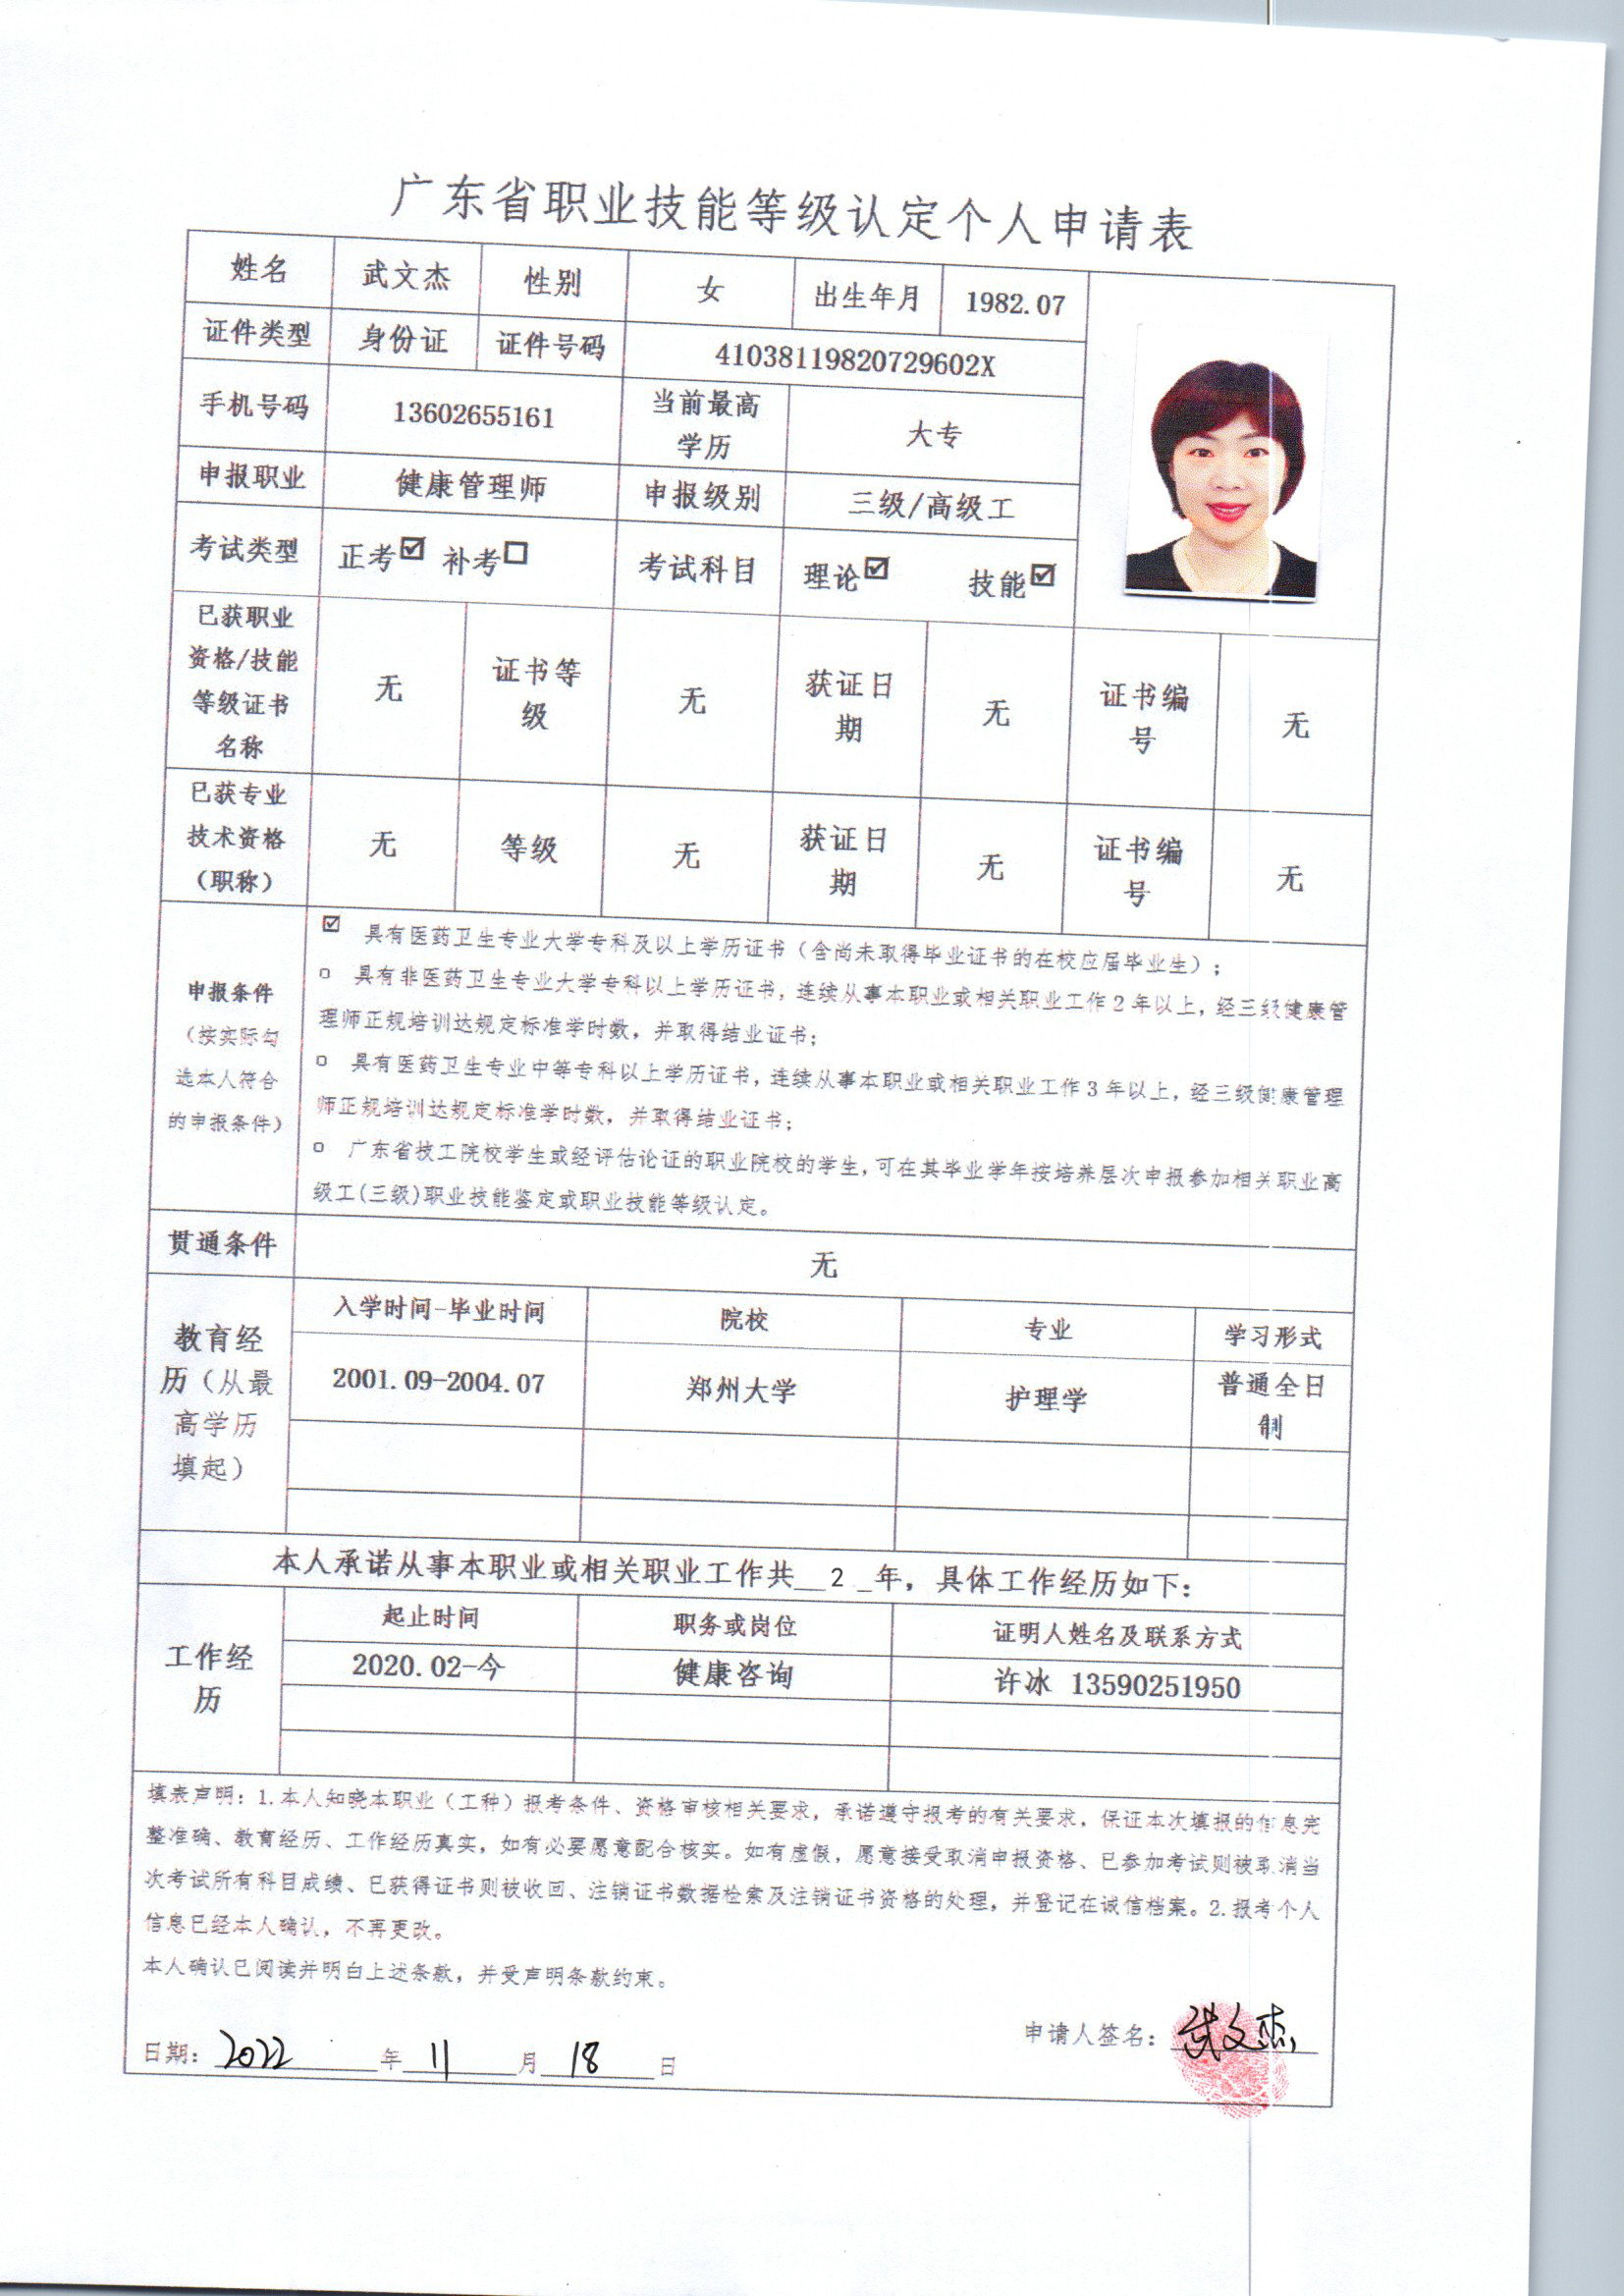 广东省职业技能等级认定个人申请表
姓名 武文杰 性别 女 出生年月 1982.07
证件类型 身份证 证件号码 41038119820729602X
手机号码 13602655161 当前最高学历 大专
申报职业 健康管理师 申报级别 三级/高级工
考试类型 正考☑ 补考☐ 考试科目 理论☑ 技能☑
已获职业资格/技能等级证书名称 无 证书等级 无 获证日期 无 证书编号 无
已获专业技术资格（职称） 无 等级 无 获证日期 无 证书编号 无
申报条件（按实际勾选本人符合的申报条件）
☑ 具有医药卫生专业大学专科及以上学历证书（含尚未取得毕业证书的在校应届毕业生）；
□ 具有非医药卫生专业大学专科以上学历证书，连续从事本职业或相关职业工作2年以上，经三级健康管
理师正规培训达规定标准学时数，并取得结业证书；
□ 具有医药卫生专业中等专科以上学历证书，连续从事本职业或相关职业工作3年以上，经三级健康管理
师正规培训达规定标准学时数，并取得结业证书；
□ 广东省技工院校学生或经评估论证的职业院校的学生，可在其毕业学年按培养层次申报参加相关职业高
级工(三级)职业技能鉴定或职业技能等级认定。
贯通条件 无
教育经历（从最高学历填起）
入学时间-毕业时间 院校 专业 学习形式
2001.09-2004.07 郑州大学 护理学 普通全日制
本人承诺从事本职业或相关职业工作共 2 年，具体工作经历如下：
工作经历
起止时间 职务或岗位 证明人姓名及联系方式
2020.02-今 健康咨询 许冰 13590251950
填表声明：1.本人知晓本职业（工种）报考条件、资格审核相关要求，承诺遵守报考的有关要求，保证本次填报的信息完
整准确、教育经历、工作经历真实，如有必要愿意配合核实。如有虚假，愿意接受取消申报资格、已参加考试则被取消当
次考试所有科目成绩、已获得证书则被收回、注销证书数据检索及注销证书资格的处理，并登记在诚信档案。2.报考个人
信息已经本人确认，不再更改。
本人确认已阅读并明白上述条款，并受声明条款约束。
申请人签名：武文杰
日期：2022年11月18日